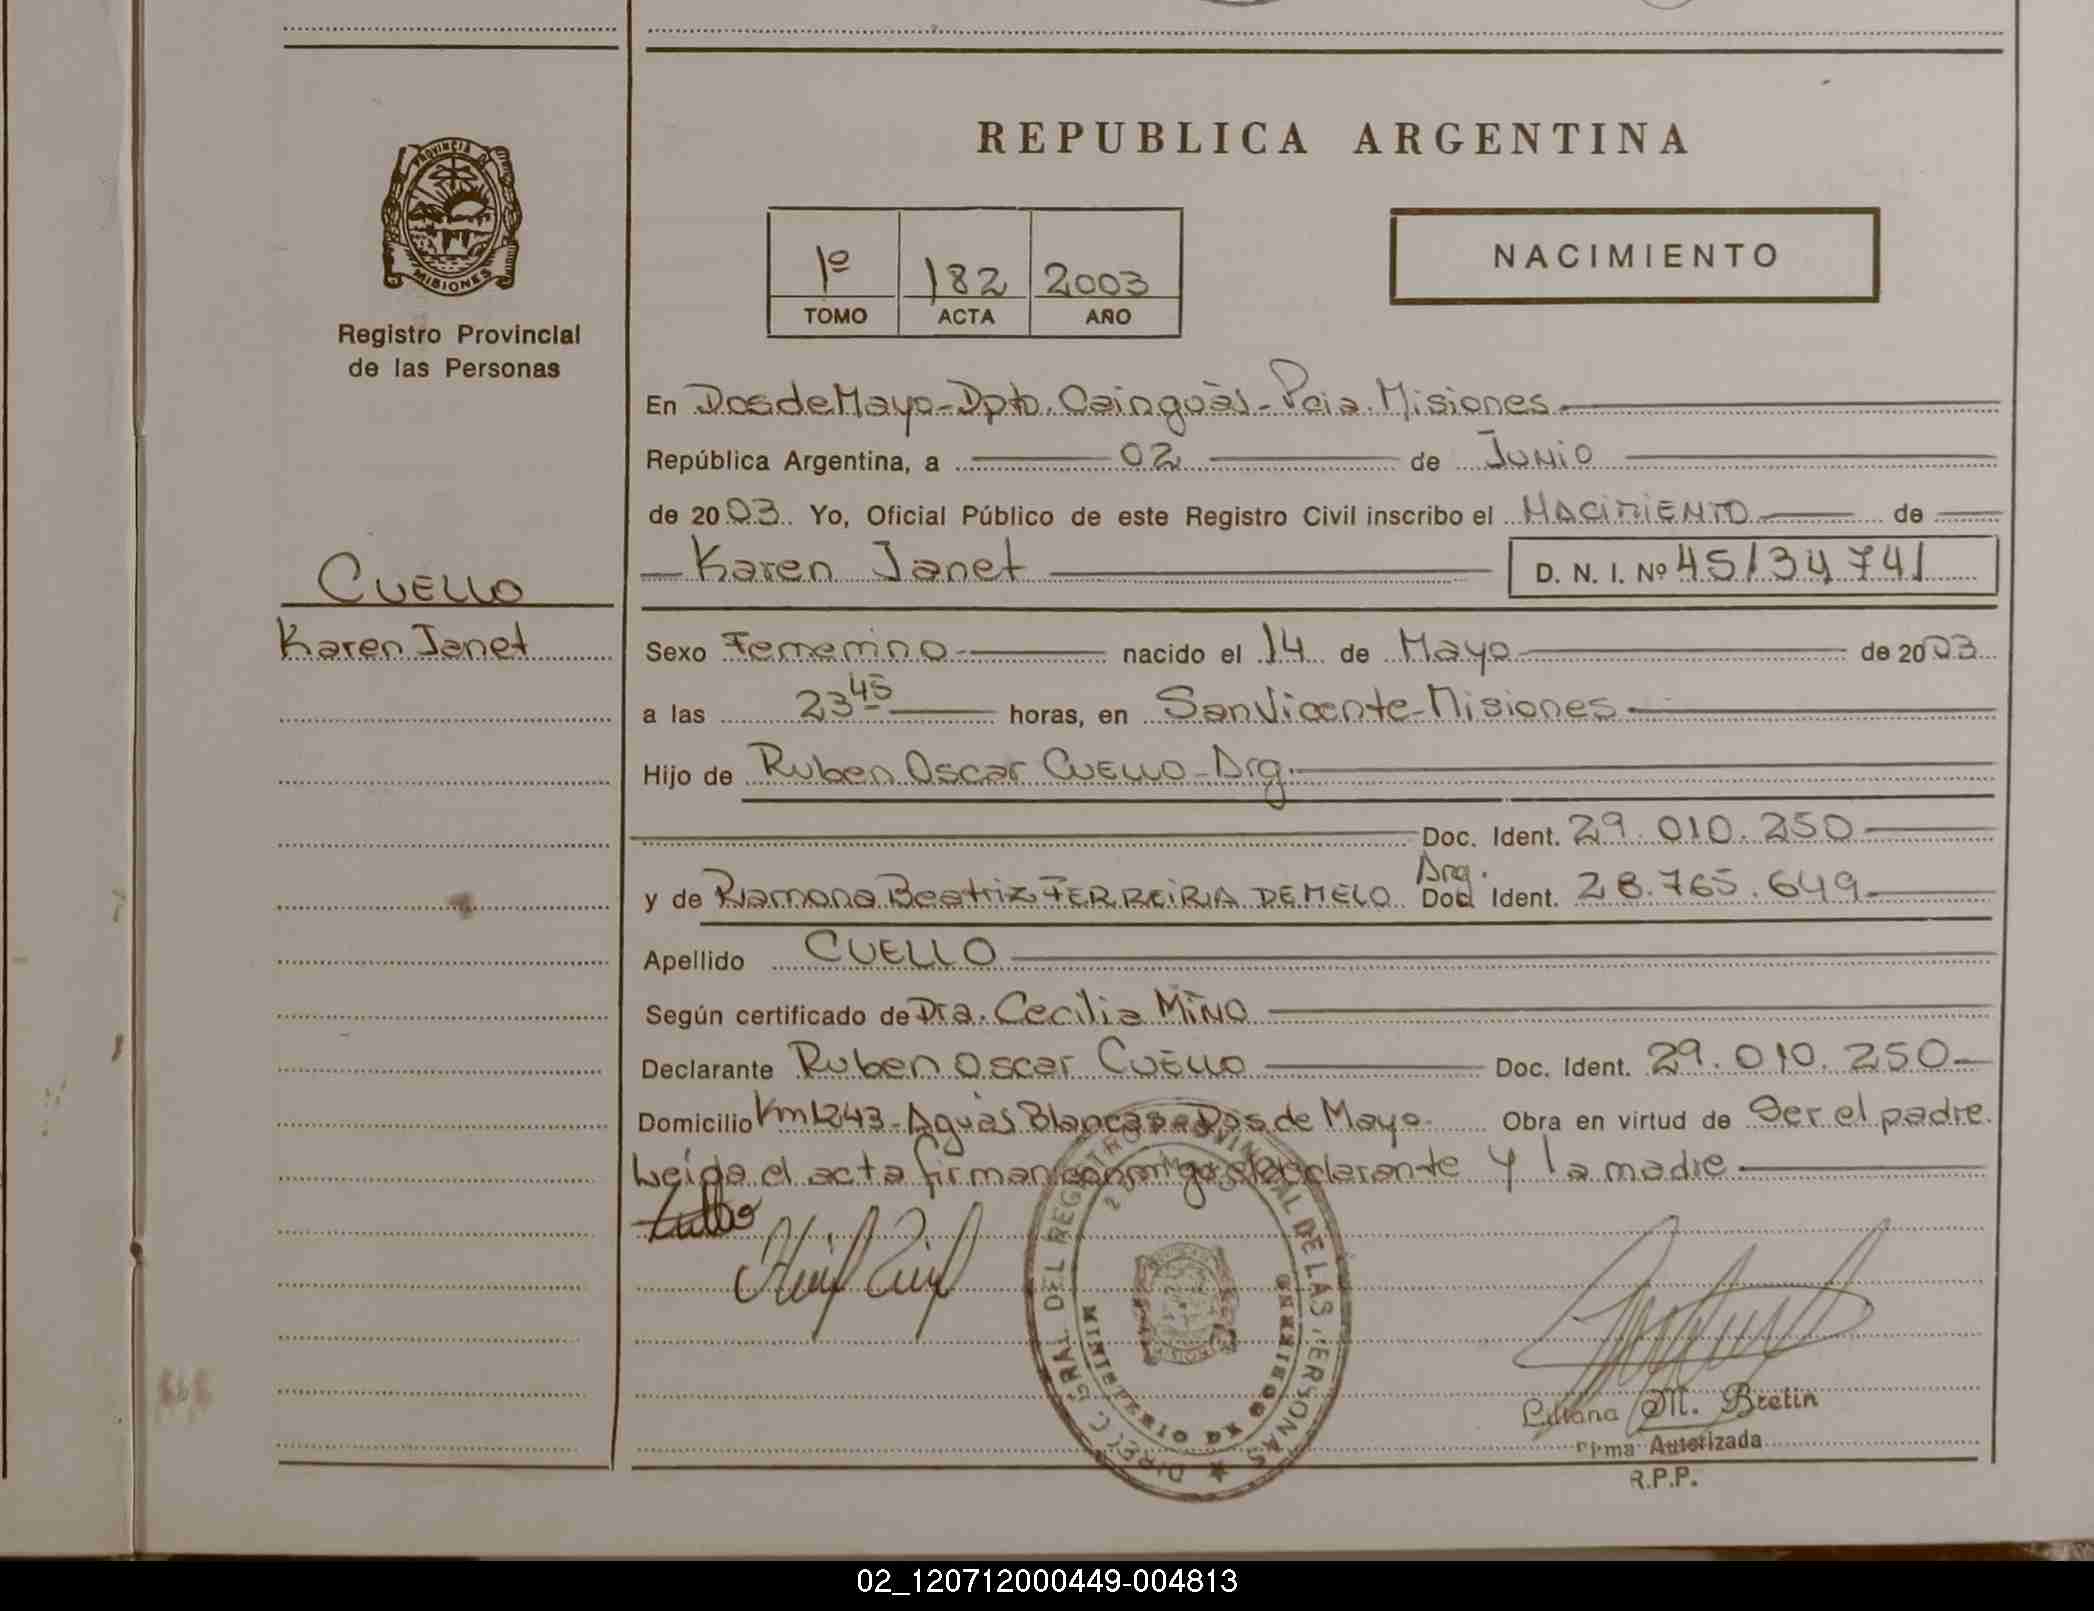 REPUBLICA ARGENTINA
PROVINCIA DE
MISIONES
Registro Provincial
de las Personas
1º 182 2003
TOMO ACTA AÑO
NACIMIENTO
En Dos de Mayo - Dpto. Cainguàs - Pcia. Misiones
República Argentina, a 02 de Junio
de 2003. Yo, Oficial Público de este Registro Civil inscribo el NACIMIENTO de
Karen Janet D. N. I. Nº 45134741
CUELLO
Karen Janet
Sexo Femenino nacido el 14 de Mayo de 2003
a las 23 45 horas, en San Vicente - Misiones
Hijo de Ruben Oscar CUELLO - Arg.
Doc. Ident. 29.010.250
Arg.
y de Ramona Beatriz FERREIRA DE MELO Doc. Ident. 28.765.649
Apellido CUELLO
Según certificado de Dra. Cecilia MIÑO
Declarante Ruben Oscar CUELLO Doc. Ident. 29.010.250
Domicilio Km 1243 - Aguas Blancas - Dos de Mayo. Obra en virtud de Ser el padre.
Leida el acta firman conmigo el declarante y la madre
DIREC. GRAL. DEL REGISTRO PROVINCIAL DE LAS PERSONAS
MINISTERIO DE GOBIERNO
Liliana M. Bretin
Firma Autorizada
R.P.P.
02_120712000449-004813